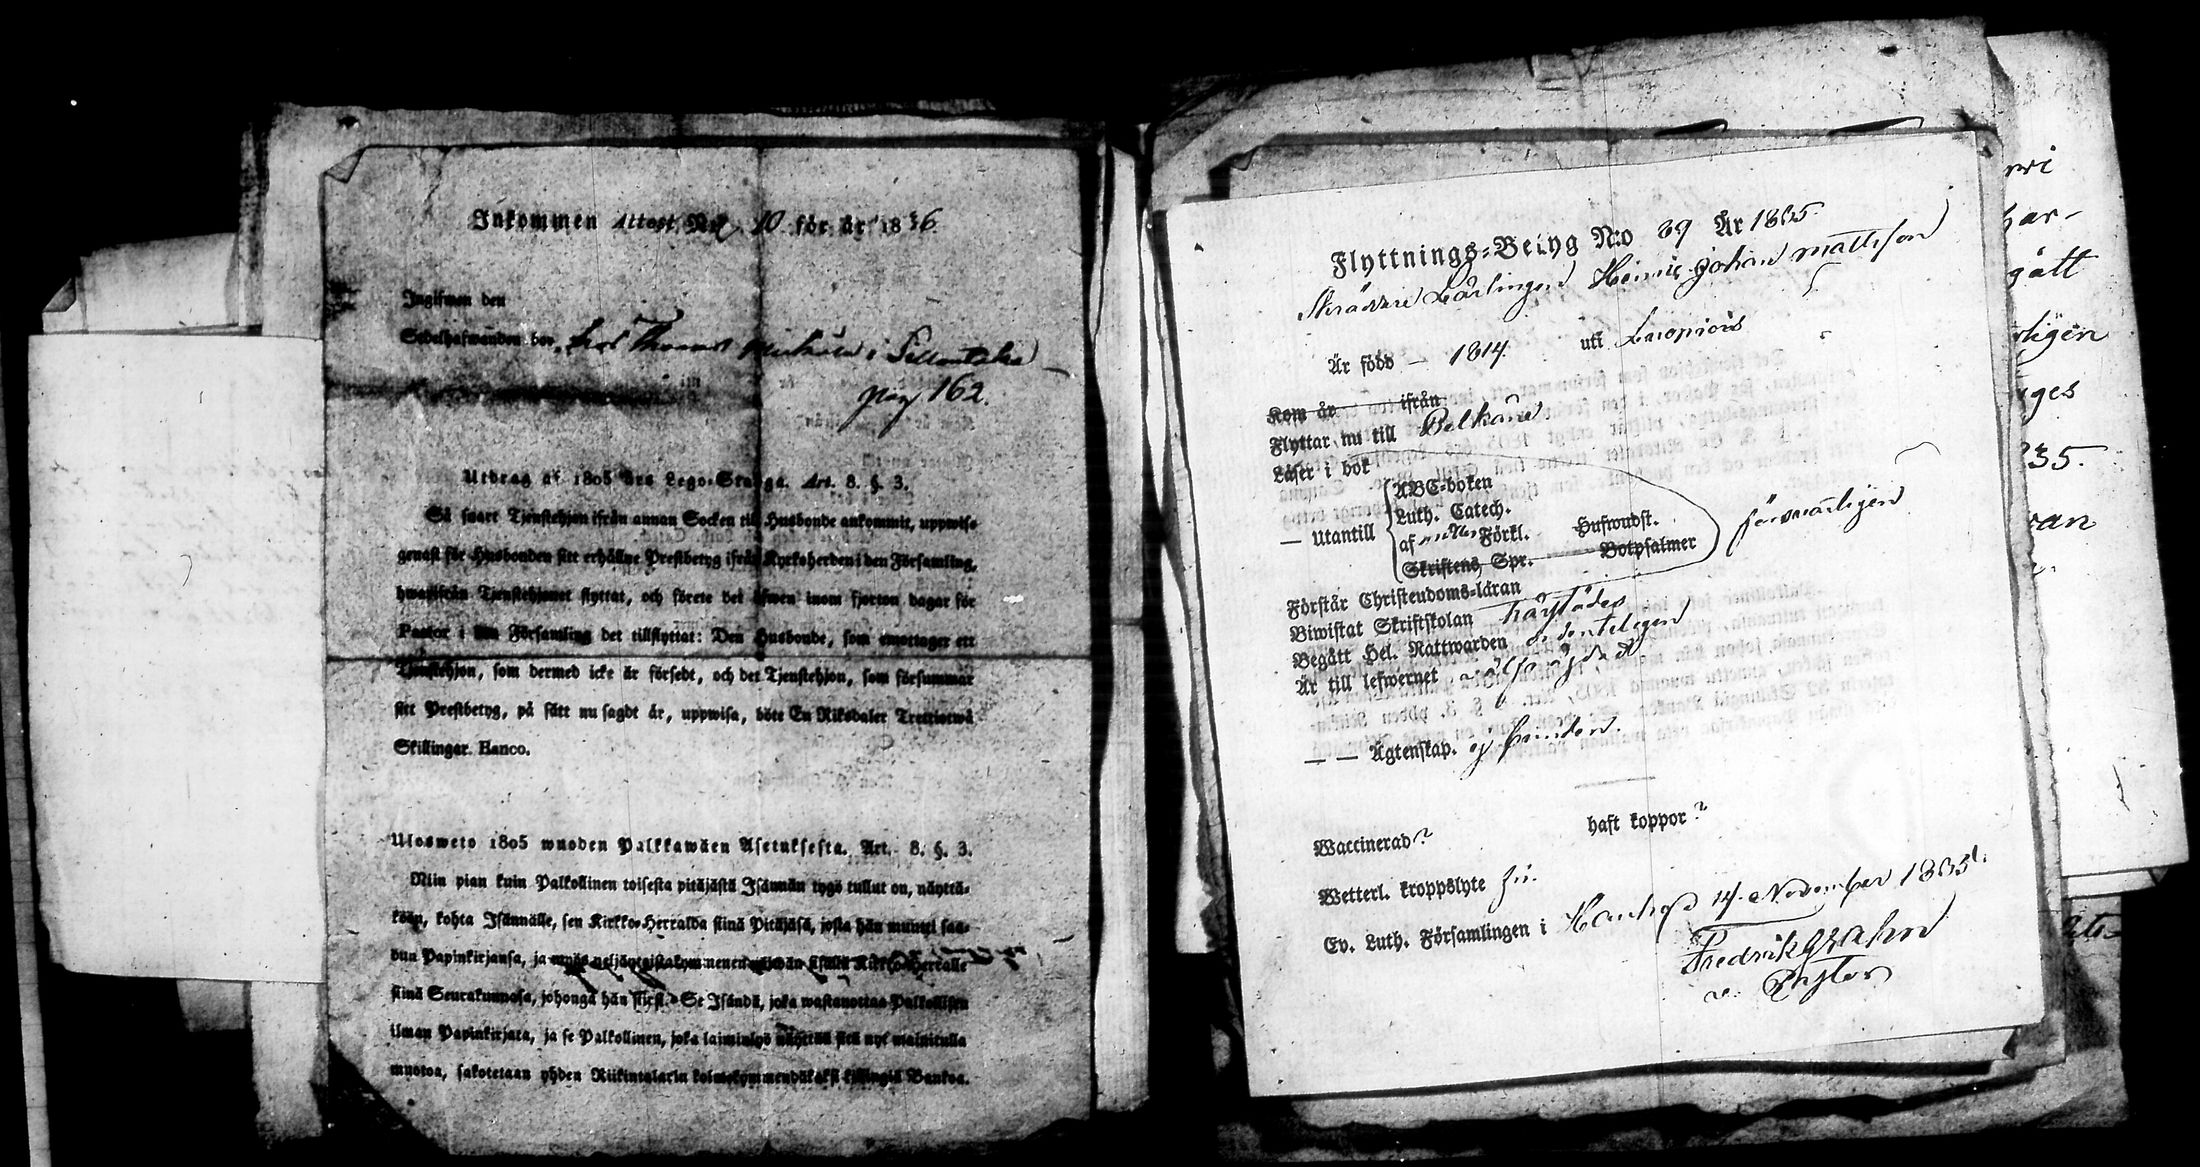 Inkommen Attest N:o 10 för år 1836
Ingifwen den
Sedelhafwanden bor
i
pag 162.
Utdrag af 1805 års Lego-Stadga. Art. 8. §. 3.
Så snart Tjenstehjon ifrån annan Socken till Husbonde ankommit, uppwise
genast för Husbonden sitt erhållne Prestbetyg ifrån Kyrkoherden i den Församling,
hwarifrån Tjenstehjonet flyttat, och förete det äfwen inom fjorton dagar för
Pastor i den Församling det tillflyttat: Den Husbonde, som emottager ett
Tjenstehjon, som dermed icke är försedt, och det Tjenstehjon, som försummar
sitt Prestbetyg, på sätt nu sagdt är, uppwisa, böte En Riksdaler Trettiotwå
Skillingar Banco.
Ulosweto 1805 wuoden Palkkawäen Asetuksesta. Art. 8. §. 3.
Niin pian kuin Palkollinen toisesta pitäjästä Isännän tygö tullut on, näyttä-
köön, kohta Isännälle, sen Kirkko-Herralda siinä Pitäjäsä, josta hän muutti saa-
dun Papinkirjansa, ja myös neljäntoistakymmenen päiwän sisällä Kirkko-Herralle
siinä Seurakunnasa, johonga hän siirsi. Se Isändä, joka wastanottaa Palkollisen
ilman Papinkirjata, ja se Palkollinen, joka laiminlyö näyttää sitä nyt mainitulla
muotoa, sakotetaan yhden Riikintalarin kolmekymmendäkaksi killingiä Bankoa.
Flyttnings-Betyg N:o 89 År 1835.
Skräddare Lärlingen Henric Johan Mattsson
Är född — 1814. uti Kuopiois
Kom år ifrån
Flyttar nu till Pelkäne
Läser i bok
— Utantill
ABC-boken
Luth. Catech.
af Förkl. Hufwudst.
Skriftens Spr. Botpsalmer
förswarligen
Förstår Christendoms-läran
Biwistat Skriftskolan
Begått Hel. Nattwarden ordentligen
Är till lefwernet wälfrägdad
— — Ägtenskap. ej bunden.
Waccinerad? haft koppor?
Wetterl. kroppslyte fri.
Ev. Luth. Församlingen i Hauho d 14 November 1835.
Fredrik Grahn
v. Pastor
gått
235.